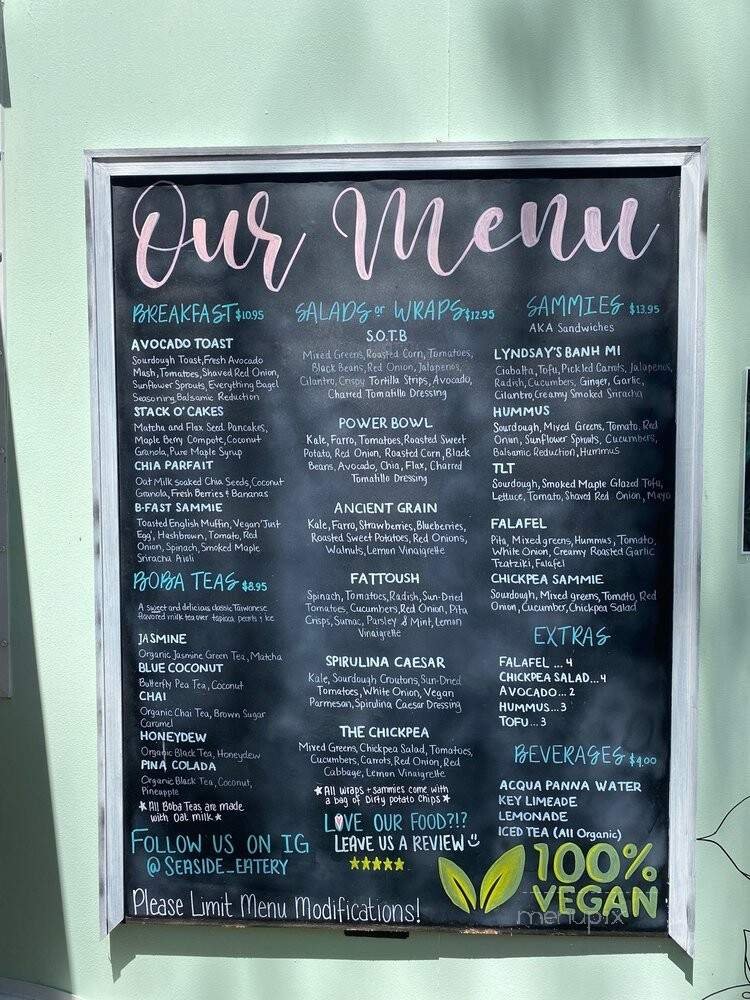 Our Menu
BREAKFAST $10.95
AVOCADO TOAST
Sourdough Toast, Fresh Avocado
Mash, Tomatoes, Shaved Red Onion,
Sunflower Sprouts, Everything Bagel
Seasoning, Balsamic Reduction
STACK O' CAKES
Matcha and Flax Seed Pancakes,
Maple Berry Compote, Coconut
Granola, Pure Maple Syrup
CHIA PARFAIT
Oat Milk soaked Chia Seeds, Coconut
Granola, Fresh Berries + Bananas
B-FAST SAMMIE
Toasted English Muffin, Vegan 'Just
Egg', Hashbrown, Tomato, Red
Onion, Spinach, Smoked Maple
Sriracha Aioli
BOBA TEAS $8.95
A sweet and delicious classic Taiwanese
flavored milk tea over tapioca pearls + Ice
JASMINE
Organic Jasmine Green Tea, Matcha
BLUE COCONUT
Butterfly Pea Tea, Coconut
CHAI
Organic Chai Tea, Brown Sugar
Caramel
HONEYDEW
Organic Black Tea, Honeydew
PINA COLADA
Organic Black Tea, Coconut,
Pineapple
★All Boba Teas are made
with Oat milk★
FOLLOW US ON IG
@SEASIDE_EATERY
SALADS or WRAPS $12.95
S.O.T.B
Mixed Greens, Roasted Corn, Tomatoes,
Black Beans, Red Onion, Jalapenos,
Cilantro, Crispy Tortilla Strips, Avocado,
Charred Tomatillo Dressing
POWER BOWL
Kale, Farro, Tomatoes, Roasted Sweet
Potato, Red Onion, Roasted Corn, Black
Beans, Avocado, Chia, Flax, Charred
Tomatillo Dressing
ANCIENT GRAIN
Kale, Farro, Strawberries, Blueberries,
Roasted Sweet Potatoes, Red Onions,
Walnuts, Lemon Vinaigrette
FATTOUSH
Spinach, Tomatoes, Radish, Sun-Dried
Tomatoes, Cucumbers, Red Onion, Pita
Crisps, Sumac, Parsley & Mint, Lemon
Vinaigrette
SPIRULINA CAESAR
Kale, Sourdough Croutons, Sun-Dried
Tomatoes, White Onion, Vegan
Parmeson, Spirulina Caesar Dressing
THE CHICKPEA
Mixed Greens, Chickpea Salad, Tomatoes,
Cucumbers, Carrots, Red Onion, Red
Cabbage, Lemon Vinaigrette
★All wraps + sammies come with
a bag of Dirty potato Chips★
LOVE OUR FOOD?!?
LEAVE US A REVIEW
SAMMIES $13.95
AKA Sandwiches
LYNDSAY'S BANH MI
Ciabatta, Tofu, Pickled Carrots, Jalapenos,
Radish, Cucumbers, Ginger, Garlic,
Cilantro, Creamy Smoked Sriracha
HUMMUS
Sourdough, Mixed Greens, Tomato, Red
Onion, Sunflower Sprouts, Cucumbers,
Balsamic Reduction, Hummus
TLT
Sourdough, Smoked Maple Glazed Tofu,
Lettuce, Tomato, Shaved Red Onion, Mayo
FALAFEL
Pita, Mixed greens, Hummus, Tomato,
White Onion, Creamy Roasted Garlic
Tzatziki, Falafel
CHICKPEA SAMMIE
Sourdough, Mixed greens, Tomato, Red
Onion, Cucumber, Chickpea Salad
EXTRAS
FALAFEL ... 4
CHICKPEA SALAD...4
AVOCADO...2
HUMMUS...3
TOFU...3
BEVERAGES $4.00
ACQUA PANNA WATER
KEY LIMEADE
LEMONADE
ICED TEA (All Organic)
100%
VEGAN
menupix
Please Limit Menu Modifications!